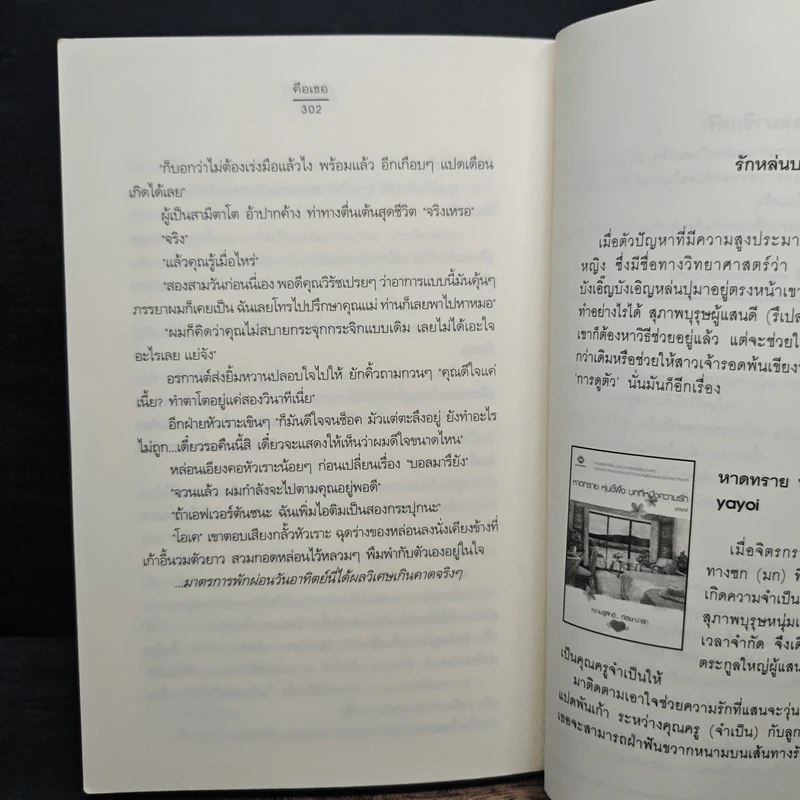 คือเธอ
302
"ก็บอกว่าไม่ต้องเร่งมือแล้วไง พร้อมแล้ว อีกเกือบๆ แปดเดือน
เกิดได้เลย"
ผู้เป็นสามีตาโต อ้าปากค้าง ท่าทางตื่นเต้นสุดชีวิต "จริงเหรอ"
"จริง"
"แล้วคุณรู้เมื่อไหร่"
"สองสามวันก่อนนี่เอง พอดีคุณวิรัชเปรยๆ ว่าอาการแบบนี้มันคุ้นๆ
ภรรยาผมก็เคยเป็น ฉันเลยโทรไปปรึกษาคุณแม่ ท่านก็เลยพาไปหาหมอ"
"ผมก็คิดว่าคุณไม่สบายกระจุกกระจิกแบบเดิม เลยไม่ได้เอะใจ
อะไรเลย แย่จัง"
อรกานต์ส่งยิ้มหวานปลอบใจไปให้ ยักคิ้วถามกวนๆ "คุณดีใจแค่
เนี้ย? ทำตาโตอยู่แค่สองวินาทีเนี่ย"
อีกฝ่ายหัวเราะเขินๆ "ก็มันดีใจจนช็อค มัวแต่ตะลึงอยู่ ยังทำอะไร
ไม่ถูก...เดี๋ยวรอคืนนี้สิ เดี๋ยวจะแสดงให้เห็นว่าผมดีใจขนาดไหน"
หล่อนเอียงคอหัวเราะน้อยๆ ก่อนเปลี่ยนเรื่อง "บอลมารึยัง"
"จวนแล้ว ผมกำลังจะไปตามคุณอยู่พอดี"
"ถ้าเอฟเวอร์ตันชนะ ฉันเพิ่มไอติมเป็นสองกระปุกนะ"
"โอเค" เขาตอบเสียงกลั้วหัวเราะ ฉุดร่างของหล่อนลงนั่งเคียงข้างที่
เก้าอี้นวมตัวยาว สวมกอดหล่อนไว้หลวมๆ พึมพำกับตัวเองอยู่ในใจ
...มาตรการพักผ่อนวันอาทิตย์นี่ได้ผลวิเศษเกินคาดจริงๆ
รักหล่นบ
เมื่อตัวปัญหาที่มีความสูงประมา
หญิง ซึ่งมีชื่อทางวิทยาศาสตร์ว่า
บังเอิ๊ญบังเอิญหล่นปุมาอยู่ตรงหน้าเขา
ทำอย่างไรได้ สุภาพบุรุษผู้แสนดี (รึเปล
เขาก็ต้องหาวิธีช่วยอยู่แล้ว แต่จะช่วยใ
กว่าเดิมหรือช่วยให้สาวเจ้ารอดพ้นเขียง
'การดูตัว' นั่นมันก็อีกเรื่อง
หาดทราย หุ่นขี้ผึ้ง บทที่หนึ่งความรัก
yayoi
หาดทราย
yayoi
เมื่อจิตรกร
ทางซก (มก) ที
เกิดความจำเป็น
สุภาพบุรุษหนุ่ม
เวลาจำกัด จึงเ
ตระกูลใหญ่ผู้แสน
เป็นคุณครูจำเป็นให้
มาติดตามเอาใจช่วยความรักที่แสนจะวุ่น
แปดพันเก้า ระหว่างคุณครู (จำเป็น) กับลูก
เธอจะสามารถฝ่าฟันขวากหนามบนเส้นทางรั